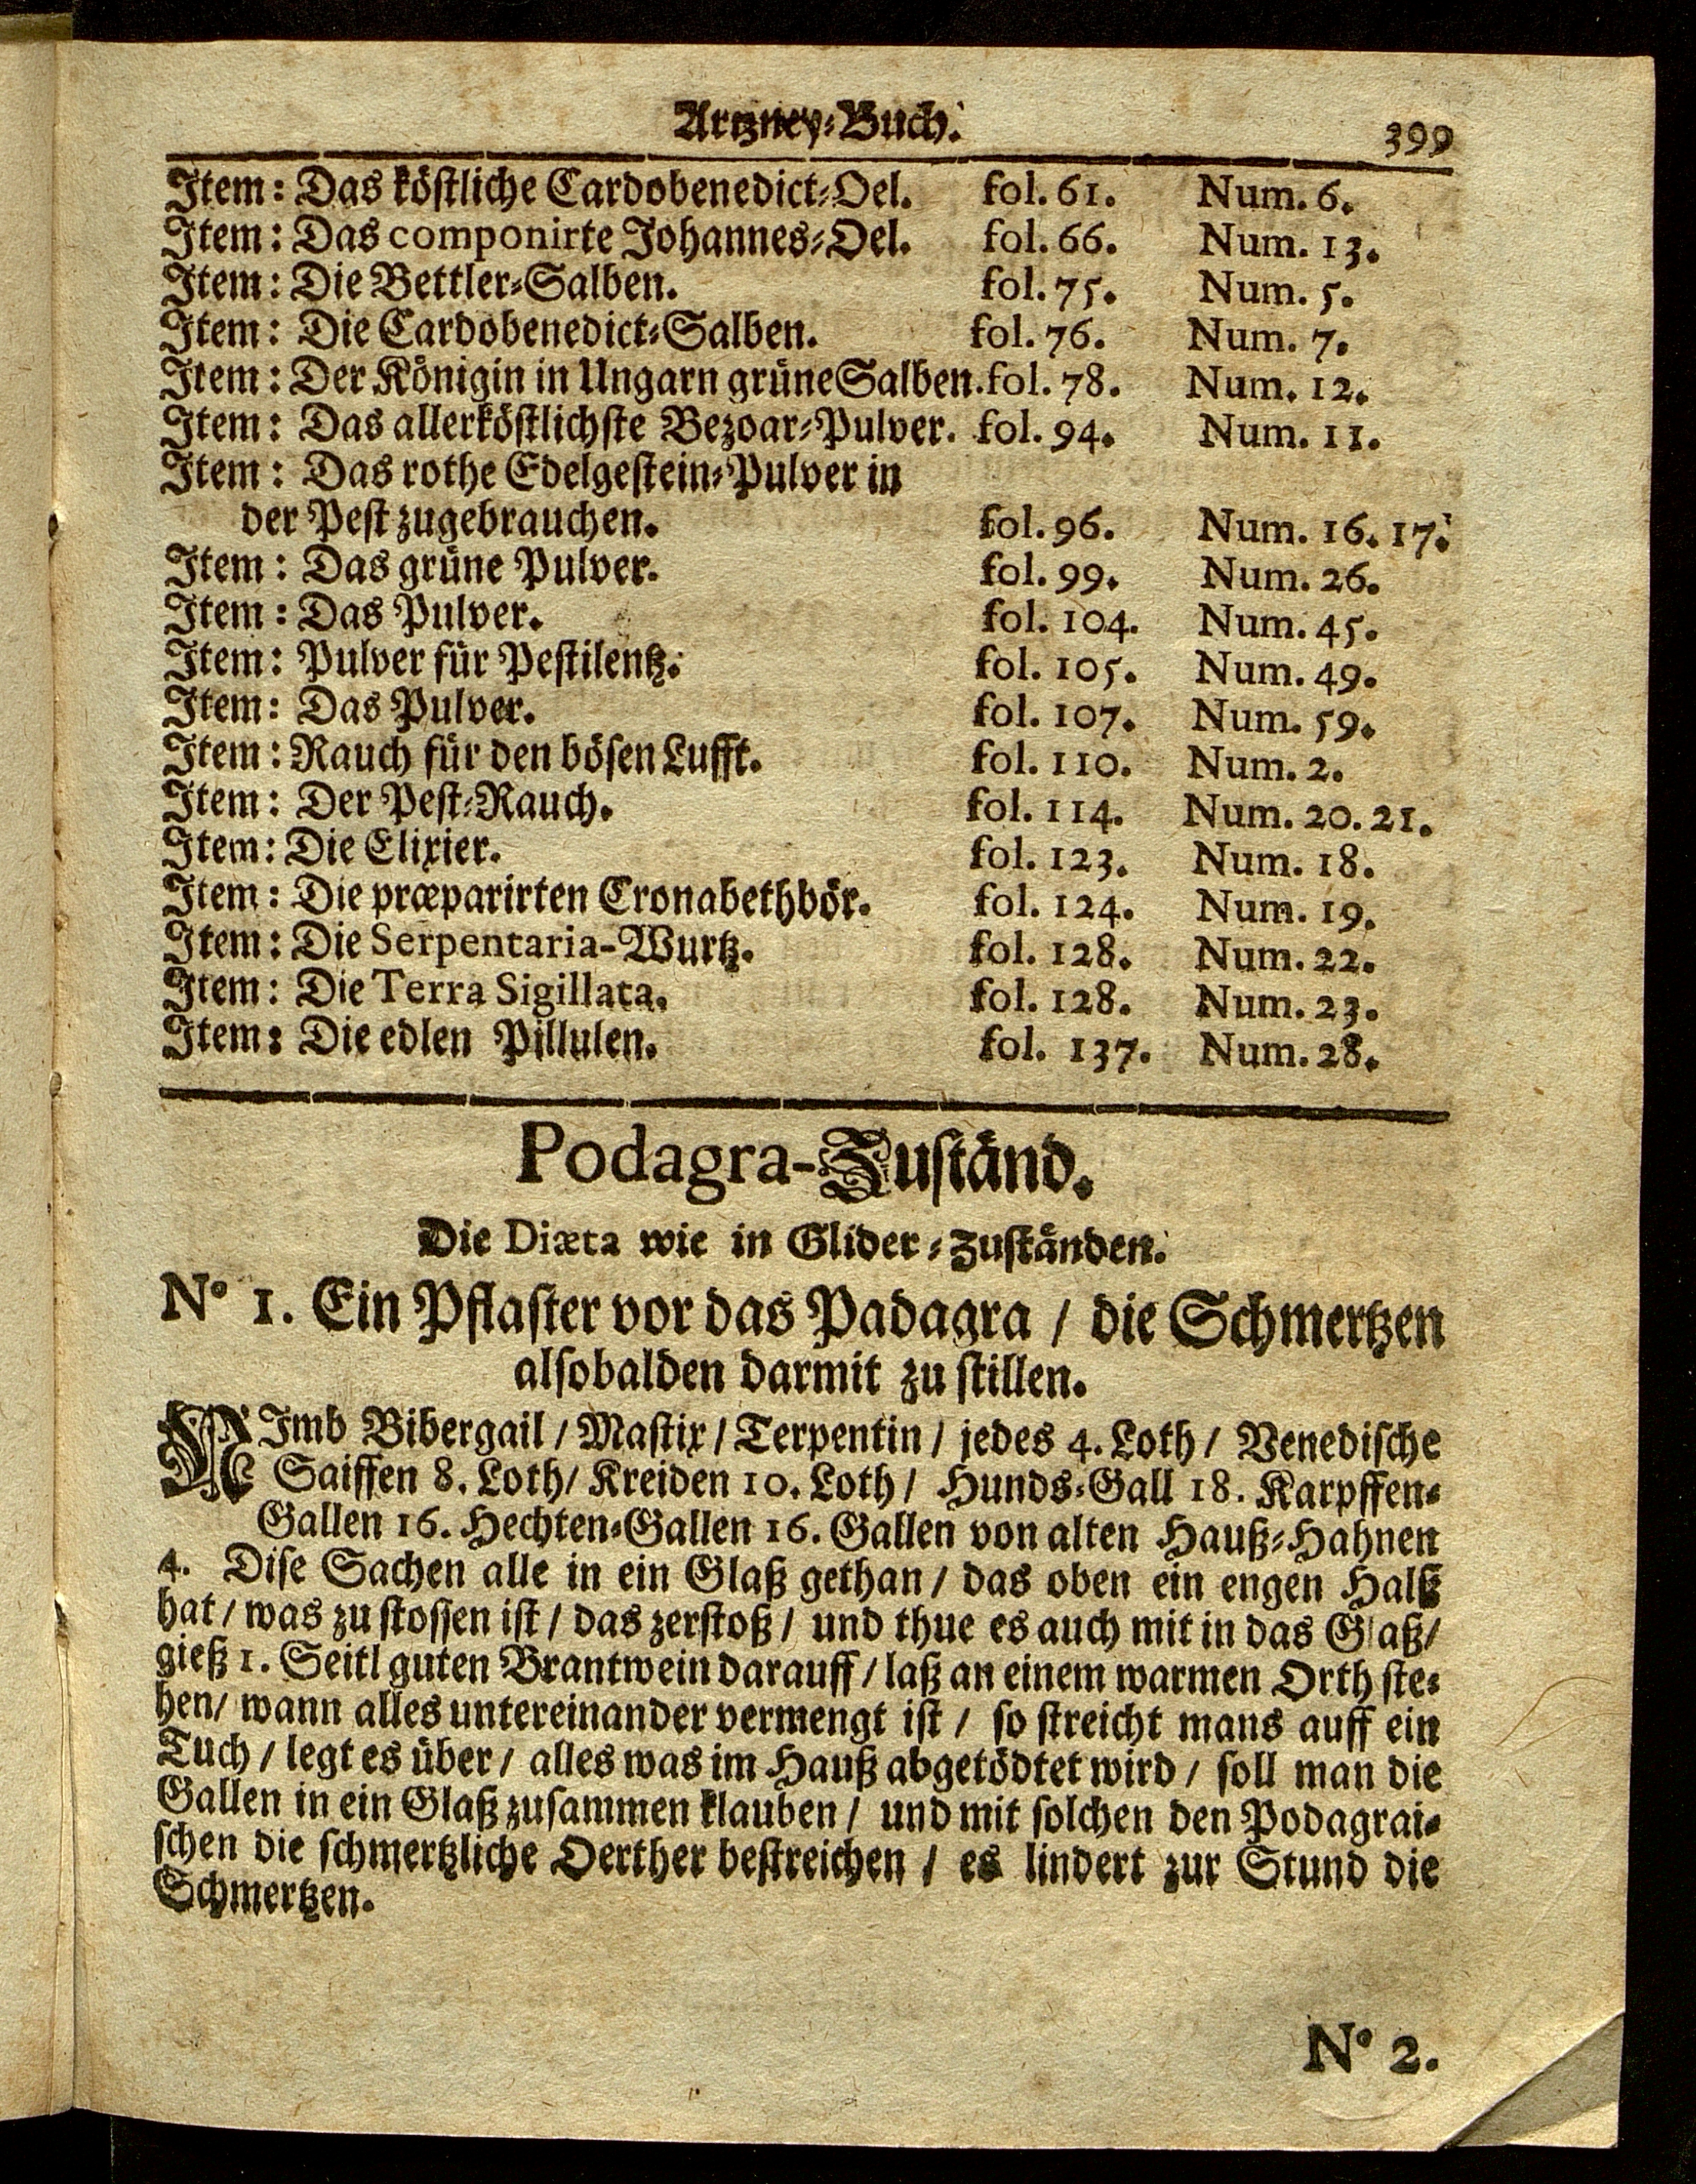 Artzney-Buch. 399
Item: Das köstliche Cardobenedict-Oel. fol. 61. Num. 6.
Item: Das componirte Johannes-Oel. fol. 66. Num. 13.
Item: Die Bettler-Salben. fol. 75. Num. 5.
Item: Die Cardobenedict-Salben. fol. 76. Num. 7.
Item: Der Königin in Ungarn grüne Salben. fol. 78. Num. 12.
Item: Das allerköstlichste Bezoar-Pulver. fol. 94. Num. 11.
Item: Das rothe Edelgestein-Pulver in
der Pest zugebrauchen. fol. 96. Num. 16. 17.
Item: Das grüne Pulver. fol. 99. Num. 26.
Item: Das Pulver. fol. 104. Num. 45.
Item: Pulver für Pestilentz. fol. 105. Num. 49.
Item: Das Pulver. fol. 107. Num. 59.
Item: Rauch für den bösen Lufft. fol. 110. Num. 2.
Item: Der Pest-Rauch. fol. 114. Num. 20. 21.
Item: Die Elixier. fol. 123. Num. 18.
Item: Die præparirten Cronabethbör. fol. 124. Num. 19.
Item: Die Serpentaria-Wurtz. fol. 128. Num. 22.
Item: Die Terra Sigillata. fol. 128. Num. 23.
Item: Die edlen Pillulen. fol. 137. Num. 28.
Podagra-Zuständ.
Die Diæta wie in Glider-Zuständen.
N° 1. Ein Pflaster vor das Padagra / die Schmertzen
alsobalden darmit zu stillen.
NImb Bibergail / Mastix / Terpentin / jedes 4. Loth / Venedische
Saiffen 8. Loth / Kreiden 10. Loth / Hunds-Gall 18. Karpffen-
Gallen 16. Hechten-Gallen 16. Gallen von alten Hauß-Hahnen
4. Dise Sachen alle in ein Glaß gethan / das oben ein engen Halß
hat / was zu stossen ist / das zerstoß / und thue es auch mit in das Glaß /
gieß 1. Seitl guten Brantwein darauff / laß an einem warmen Orth ste-
hen / wann alles untereinander vermengt ist / so streicht mans auff ein
Tuch / legt es über / alles was im Hauß abgetödtet wird / soll man die
Gallen in ein Glaß zusammen klauben / und mit solchen den Podagrai-
schen die schmertzliche Oerther bestreichen / es lindert zur Stund die
Schmertzen.
N° 2.